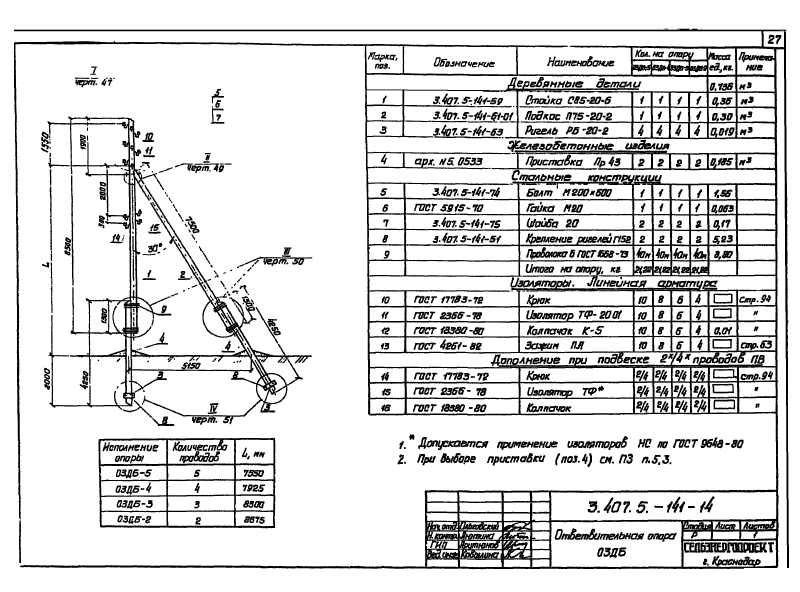 27
I
черт. 47
5
6
7
1550
1900
10
11
II
черт. 49
2000
340
7500
15
14
30°
III
черт. 50
8500
1
2
L
1500
9
1500
4250
4
4
4250
2000
5150
3
2
3
IV
черт. 51
8
Исполнение опоры Количество проводов L, мм
ОЗДБ-5 5 7550
ОЗДБ-4 4 7925
ОЗДБ-3 3 8300
ОЗДБ-2 2 8675
Марка, поз. Обозначение Наименование Кол. на опору Масса ед., кг. Примечание
Деревянные детали 0,736 м³
1 3.407.5-141-59 Стойка С85-20-6 1 1 1 1 0,36 м³
2 3.407.5-141-61-01 Подкос П75-20-2 1 1 1 1 0,30 м³
3 3.407.5-141-63 Ригель РБ-20-2 4 4 4 4 0,019 м³
Железобетонные изделия
4 арх. №5.0533 Приставка Пр 43 2 2 2 2 0,185 м³
Стальные конструкции
5 3.407.5-141-74 Болт М200×600 1 1 1 1 1,56
6 ГОСТ 5915-70 Гайка М20 1 1 1 1 0,063
7 3.407.5-141-75 Шайба 20 2 2 2 2 0,17
8 3.407.5-141-51 Крепление ригелей Г152 2 2 2 2 5,23
9 Проволока 6 ГОСТ 1668-73 40м 40м 40м 40м 8,80
Итого на опору, кг 21,22 21,22 21,22 21,22
Изоляторы. Линейная арматура
10 ГОСТ 17783-72 Крюк 10 8 6 4 стр. 94
11 ГОСТ 2366-78 Изолятор ТФ-2001 10 8 6 4 "
12 ГОСТ 18380-80 Колпачок К-5 10 8 6 4 0,01 "
13 ГОСТ 4261-82 Зажим ПА 10 8 6 4 стр. 63
Дополнение при подвеске 2ˣ/4ˣ проводов ПВ
14 ГОСТ 17783-72 Крюк 2/4 2/4 2/4 2/4 стр. 94
15 ГОСТ 2366-78 Изолятор ТФ* 2/4 2/4 2/4 2/4 "
16 ГОСТ 18380-80 Колпачок 2/4 2/4 2/4 2/4 "
1.* Допускается применение изоляторов НС по ГОСТ 9648-80
2. При выборе приставки (поз. 4) см. ПЗ п. 5,3.
3.407.5.-141-14
Нач. отд.
Н. контр.
ГИП
Вед. инж.
Ответвительная опора
ОЗДБ
Стадия Лист Листов
Р 1
СЕЛЬЭНЕРГОПРОЕКТ
г. Краснодар